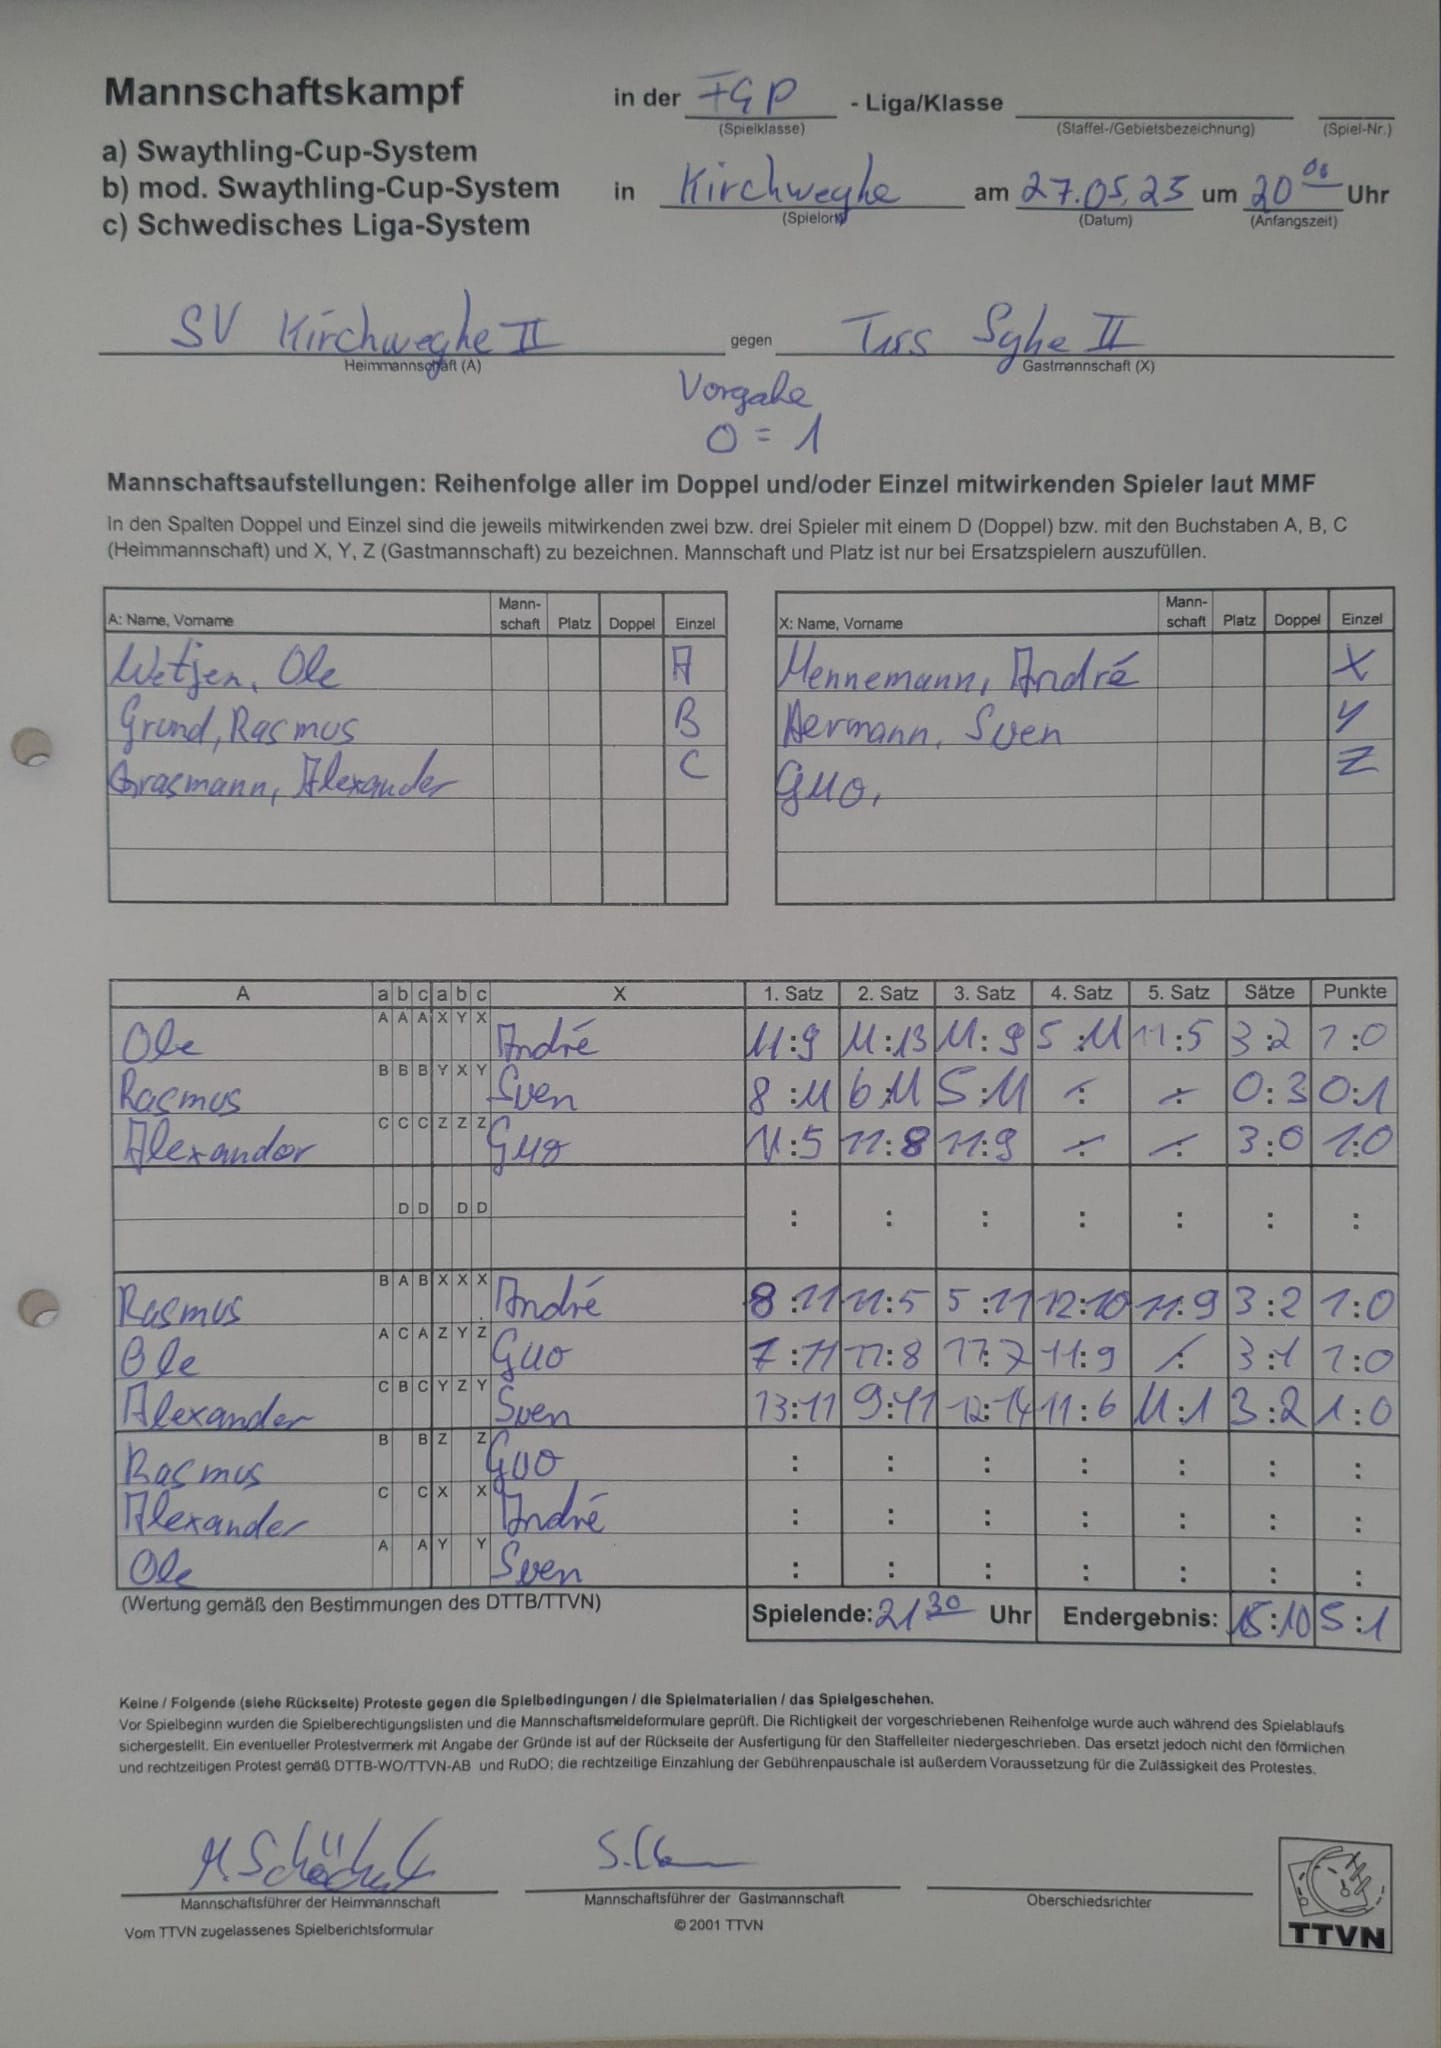 Mannschaftskampf in der FGP - Liga/Klasse
(Spielklasse) (Staffel-/Gebietsbezeichnung) (Spiel-Nr.)
a) Swaythling-Cup-System
b) mod. Swaythling-Cup-System in Kirchweyhe am 27.05.23 um 20 00 Uhr
(Spielort) (Datum) (Anfangszeit)
c) Schwedisches Liga-System
SV Kirchweyhe II gegen TuS Syke II
Heimmannschaft (A) Gastmannschaft (X)
Vorgabe
0 = 1
Mannschaftsaufstellungen: Reihenfolge aller im Doppel und/oder Einzel mitwirkenden Spieler laut MMF
In den Spalten Doppel und Einzel sind die jeweils mitwirkenden zwei bzw. drei Spieler mit einem D (Doppel) bzw. mit den Buchstaben A, B, C
(Heimmannschaft) und X, Y, Z (Gastmannschaft) zu bezeichnen. Mannschaft und Platz ist nur bei Ersatzspielern auszufüllen.
A: Name, Vorname Mann-schaft Platz Doppel Einzel
Wetjen, Ole A
Grund, Rasmus B
Grasmann, Alexander C
X: Name, Vorname Mann-schaft Platz Doppel Einzel
Mennemann, André X
Hermann, Sven Y
Guo, Z
A a b c a b c X 1. Satz 2. Satz 3. Satz 4. Satz 5. Satz Sätze Punkte
Ole A A A X Y X André 11:9 11:13 11:9 5:11 11:5 3:2 1:0
Rasmus B B B Y X Y Sven 8:11 6:11 5:11 : : 0:3 0:1
Alexander C C C Z Z Z Guo 11:5 11:8 11:9 : : 3:0 1:0
D D D D : : : : : : :
Rasmus B A B X X X André 8:11 11:5 5:11 12:10 11:9 3:2 1:0
Ole A C A Z Y Z Guo 7:11 11:8 11:7 11:9 : 3:1 1:0
Alexander C B C Y Z Y Sven 13:11 9:11 12:14 11:6 11:1 3:2 1:0
Rasmus B B Z Z Guo : : : : : : :
Alexander C C X X André : : : : : : :
Ole A A Y Y Sven : : : : : : :
(Wertung gemäß den Bestimmungen des DTTB/TTVN) Spielende: 21 30 Uhr Endergebnis: 15:10 5:1
Keine / Folgende (siehe Rückseite) Proteste gegen die Spielbedingungen / die Spielmaterialien / das Spielgeschehen.
Vor Spielbeginn wurden die Spielberechtigungslisten und die Mannschaftsmeldeformulare geprüft. Die Richtigkeit der vorgeschriebenen Reihenfolge wurde auch während des Spielablaufs
sichergestellt. Ein eventueller Protestvermerk mit Angabe der Gründe ist auf der Rückseite der Ausfertigung für den Staffelleiter niedergeschrieben. Das ersetzt jedoch nicht den förmlichen
und rechtzeitigen Protest gemäß DTTB-WO/TTVN-AB und RuDO; die rechtzeitige Einzahlung der Gebührenpauschale ist außerdem Voraussetzung für die Zulässigkeit des Protestes.
Mannschaftsführer der Heimmannschaft Mannschaftsführer der Gastmannschaft Oberschiedsrichter
Vom TTVN zugelassenes Spielberichtsformular © 2001 TTVN
TTVN